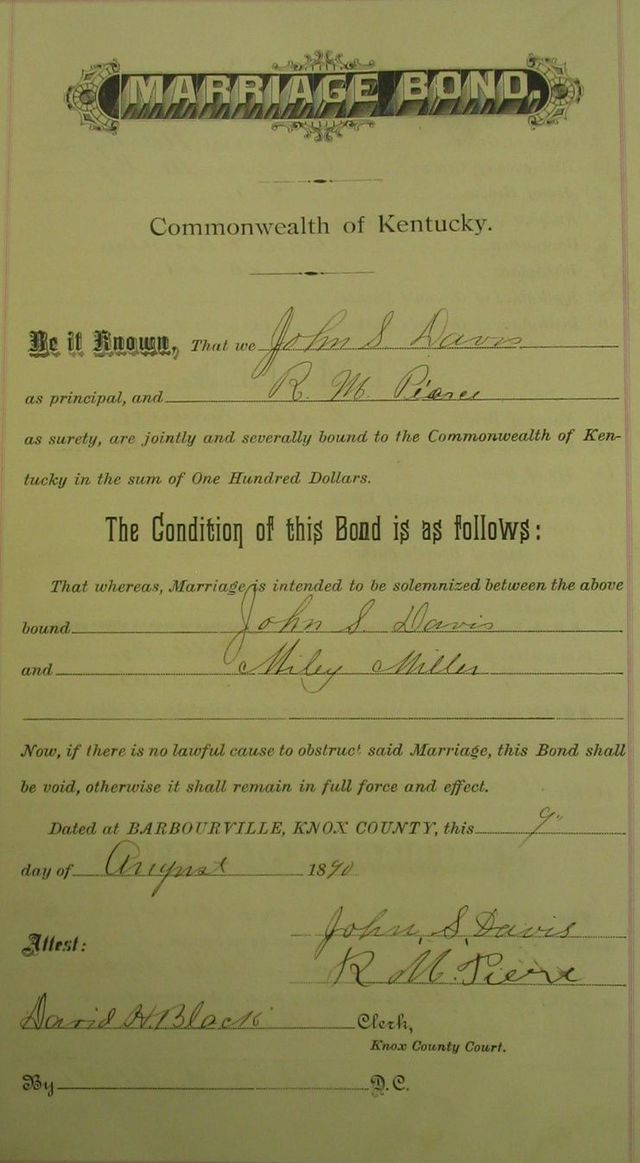 MARRIAGE BOND.
Commonwealth of Kentucky.
Be it Known, That we John S Davis
as principal, and R. M. Pierce
as surety, are jointly and severally bound to the Commonwealth of Ken-
tucky in the sum of One Hundred Dollars.
The Condition of this Bond is as follows:
That whereas, Marriage is intended to be solemnized between the above
bound John S. Davis
and Miley Miller
Now, if there is no lawful cause to obstruct said Marriage, this Bond shall
be void, otherwise it shall remain in full force and effect.
Dated at BARBOURVILLE, KNOX COUNTY, this 9"
day of August 1890
John, S, Davis
Attest:
R M. Pierce
David H. Black Clerk,
Knox County Court.
By D. C.